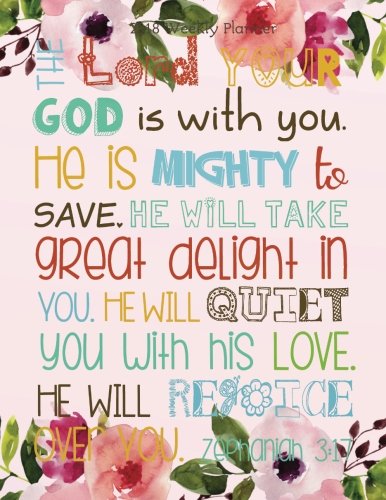 2018 Weekly Planner
THE Lord YOUR
GOD is with you.
He is MIGHTY to
SAVE. HE WILL TAKE
great delight in
YOU. HE WILL QUIET
you with his LOVE.
HE WILL REJOICE
OVER YOU. Zephaniah 3:17